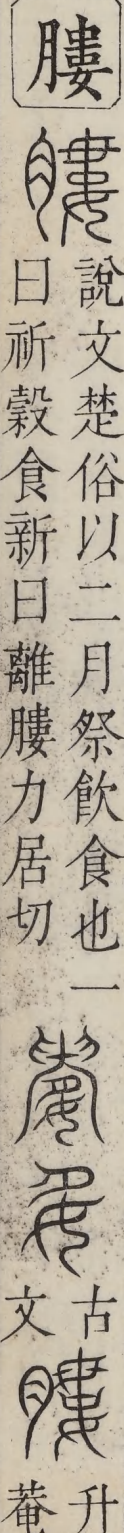 膢
膢
說文楚俗以二月祭飲食也一
曰祈穀食新曰離膢力居切
古
文
膢
升
菴